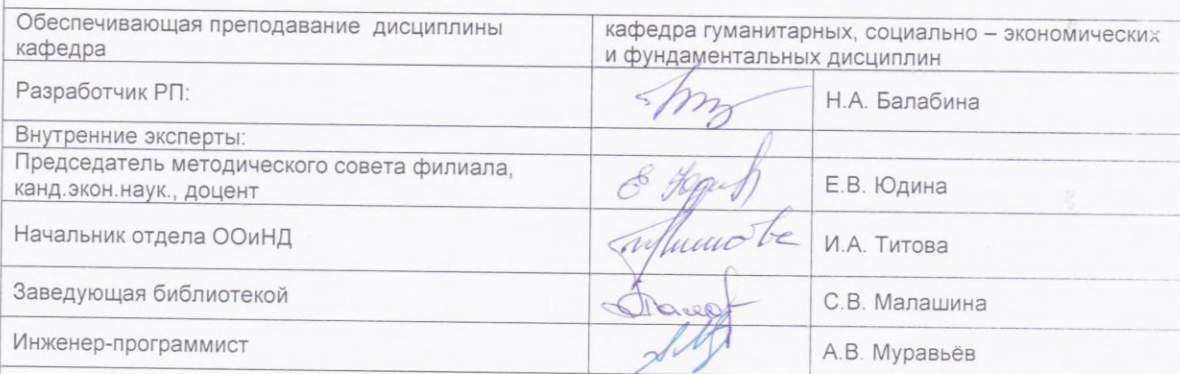 Обеспечивающая преподавание дисциплины
кафедра
кафедра гуманитарных, социально – экономических
и фундаментальных дисциплин
Разработчик РП:
Н.А. Балабина
Внутренние эксперты:
Председатель методического совета филиала,
канд.экон.наук., доцент
Е.В. Юдина
Начальник отдела ООиНД
И.А. Титова
Заведующая библиотекой
С.В. Малашина
Инженер-программист
А.В. Муравьёв